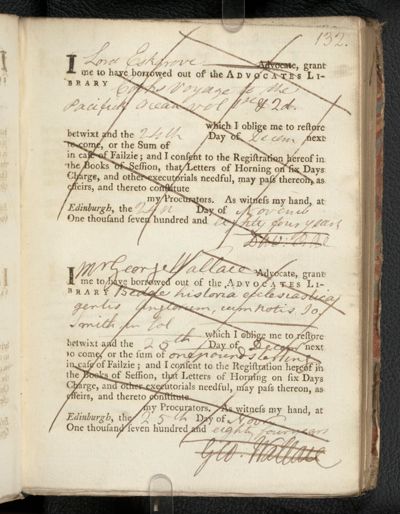 132.
I Lord Eskgrove Advocate, grant
me to have borrowed out of the ADVOCATES LI-
BRARY Cooks Voyage to the
Pacifick Ocean vol 1st & 2d.
which I oblige me to restore
betwixt and the 24th Day of Decem next
to come, or the Sum of
in case of Failzie; and I consent to the Registration hereof in
the Books of Session, that Letters of Horning on six Days
Charge, and other executorials needful, may pass thereon, as
effeirs, and thereto constitute
my Procurators. As witness my hand, at
Edinburgh, the 24th Day of Novemb
One thousand seven hundred and eighty four years
I Mr George Wallace Advocate, grant
me to have borrowed out of the ADVOCATES LI-
BRARY Bedae historia eclesiastica
gentis Anglorum, cum notis Jo.
Smith in fol
which I oblige me to restore
betwixt and the 25th Day of Decem next
to come, or the sum of one pound sterling
in case of Failzie; and I consent to the Registration hereof in
the Books of Session, that Letters of Horning on six Days
Charge, and other executorials needful, may pass thereon, as
effeirs, and thereto constitute
my Procurators. As witness my hand, at
Edinburgh, the 25th Day of Nov
One thousand seven hundred and eighty four years
Geo. Wallace